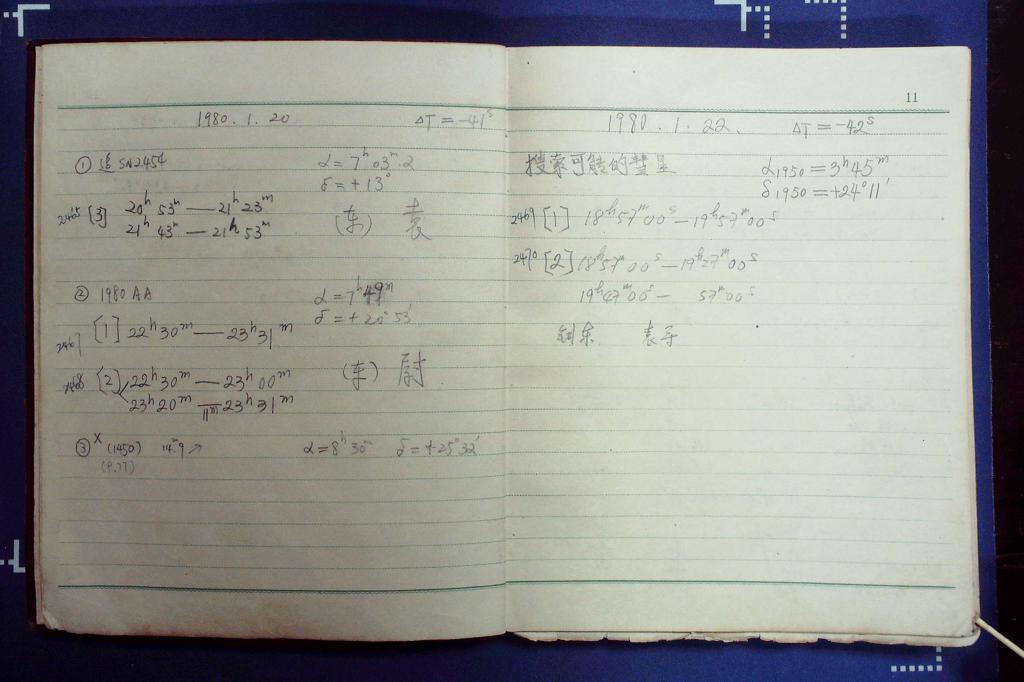 1980.1.20 ΔT=-41ˢ
① 追 SN2454 α=7ʰ03ᵐ.2
δ=+13°
2465 [3] 20ʰ53ᵐ—21ʰ23ᵐ
21ʰ43ᵐ—21ʰ53ᵐ (车) 袁
② 1980 AA α=7ʰ49ᵐ
δ=+20°53′
2467 [1] 22ʰ30ᵐ—23ʰ31ᵐ
2468 [2] 22ʰ30ᵐ—23ʰ00ᵐ (车) 尉
23ʰ20ᵐ—23ʰ31ᵐ
11ᵐ
③ˣ (1450) 14ᵐ.9↗ α=8ʰ30ᵐ δ=+25°32′
11
1980.1.22. ΔT=-42ˢ
搜索可能的彗星 α1950=3ʰ45ᵐ
δ1950=+24°11′
2469 [1] 18ʰ57ᵐ00ˢ—19ʰ57ᵐ00ˢ
2470 [2] 18ʰ57ᵐ00ˢ—19ʰ27ᵐ00ˢ
19ʰ47ᵐ00ˢ— 57ᵐ00ˢ